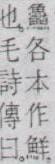 鱻各本作鮮
也。毛詩傳曰。